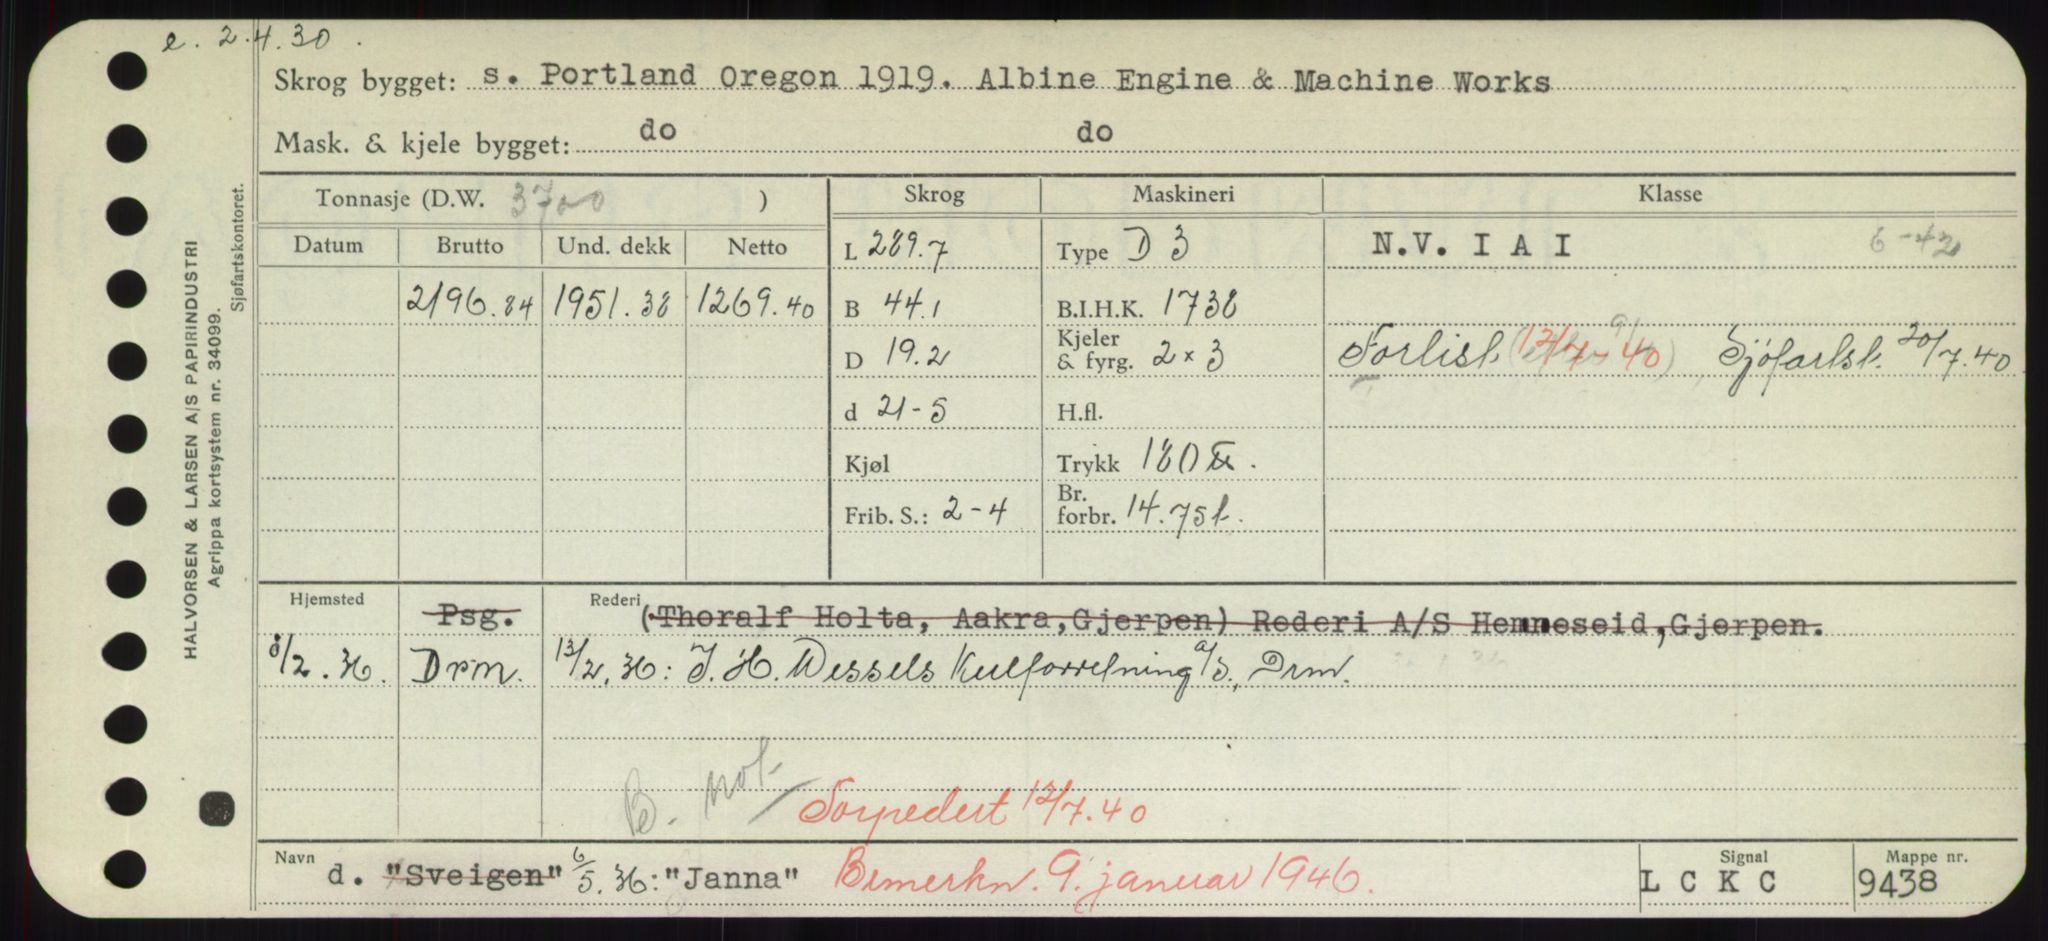 e. 2.4.30.
Skrog bygget: s. Portland Oregon 1919. Albine Engine & Machine Works
Mask. & kjele bygget: do do
Tonnasje (D.W. 3700 ) Skrog Maskineri Klasse
Datum Brutto Und. dekk Netto L 289.7 Type D 3 N.V. I A I 6-42
2196.84 1951.38 1269.40 B 44.1 B.I.H.K. 1738
D 19.2 Kjeler & fyrg. 2 x 3 Forlist 12/7-40 Sjøfartsk. 20/7.40
d 21-5 H.fl.
Kjøl Trykk 180 ℔.
Frib. S.: 2-4 Br. forbr. 14.75 t.
Hjemsted Psg. Rederi (Thoralf Holta, Aakra, Gjerpen) Rederi A/S Hemneseid, Gjerpen.
8/2.36. Drm. 13/2.36: J. H. Wessels Kulforretning A/S., Drm.
B. not.
Torpedert 12/7.40
Navn d. "Sveigen" 6/5.36: "Janna" Bemerkn. 9. januar 1946.
Signal LCKC
Mappe nr. 9438
HALVORSEN & LARSEN A/S PAPIRINDUSTRI
Agrippa kortsystem nr. 34099.
Sjøfartskontoret.